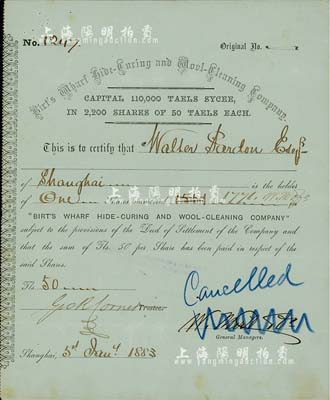 上海陽明拍賣
No. 1247 Original No.
Birt's Wharf Hide-Curing and Wool-Cleaning Company.
CAPITAL 110,000 TAELS SYCEE,
IN 2,200 SHARES OF 50 TAELS EACH.
This is to certify that Walter Scardon Esqr.
of Shanghai is the holder
of One
"BIRT'S WHARF HIDE-CURING AND WOOL-CLEANING COMPANY"
subject to the provisions of the Deed of Settlement of the Company and
that the sum of Tls. 50 per Share has been paid in respect of the
said Shares.
Tls. 50
Cancelled
Geo. R. Corner Trustee
General Managers.
Shanghai, 5th Jany. 1883
上海陽明拍賣